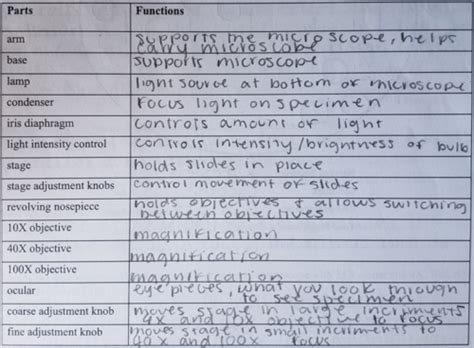 Parts Functions
arm supports the microscope, helps
carry microscope
base supports microscope
lamp light source at bottom of microscope
condenser focus light on specimen
iris diaphragm controls amount of light
light intensity control controls intensity/brightness of bulb
stage holds slides in place
stage adjustment knobs control movement of slides
revolving nosepiece holds objectives & allows switching
between objectives
10X objective magnification
40X objective magnification
100X objective magnification
ocular eye pieces, what you look through
to see specimen
coarse adjustment knob moves stage in large increments
4x and 10x objective to focus
fine adjustment knob moves stage in small incriments to
40x and 100x focus